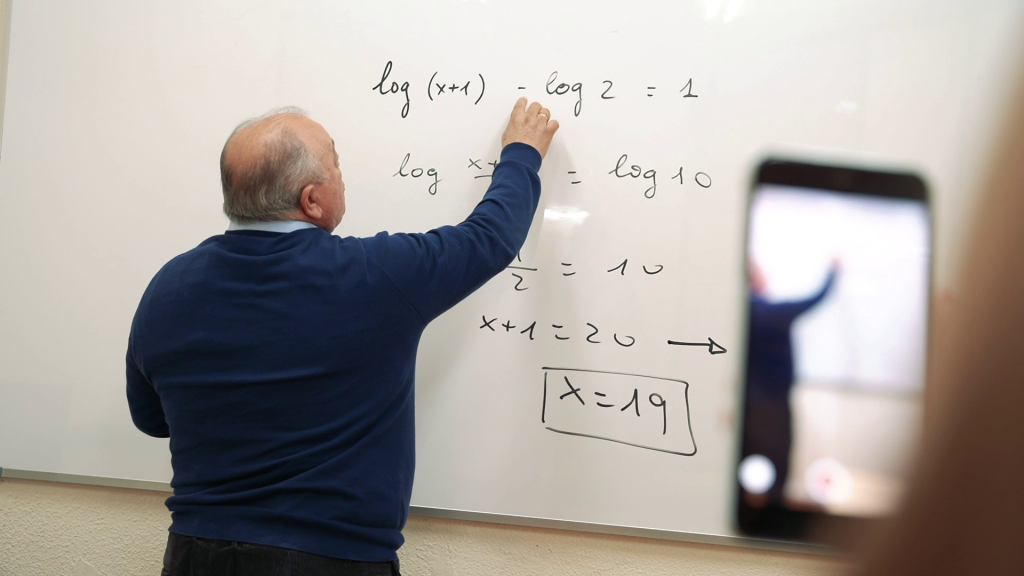 log (x+1) - log 2 = 1
log x+ = log 10
2 = 10
x+1 = 20 →
x = 19